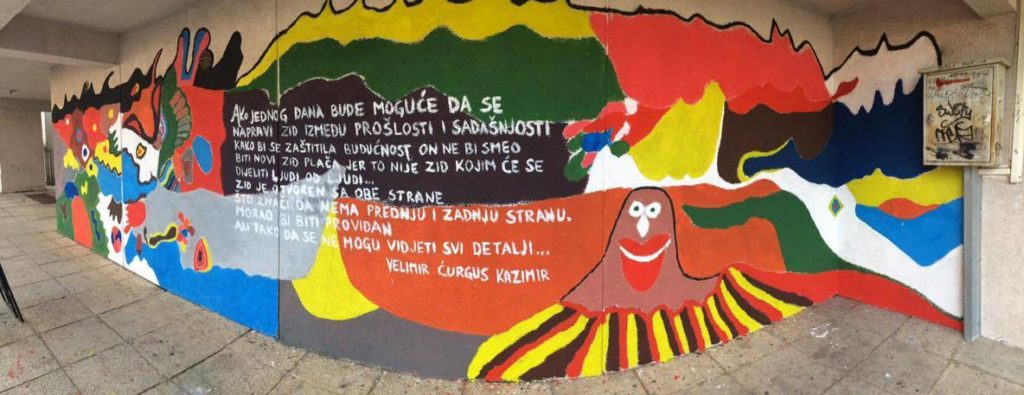 AKO JEDNOG DANA BUDE MOGUĆE DA SE
NAPRAVI ZID IZMEĐU PROŠLOSTI I SADAŠNJOSTI
KAKO BI SE ZAŠTITILA BUDUĆNOST ON NE BI SMEO
BITI NOVI ZID PLAČA JER TO NIJE ZID KOJIM ĆE SE
DIJELITI LJUDI OD LJUDI...
ZID JE OTVOREN SA OBE STRANE
ŠTO ZNAČI DA NEMA PREDNJU I ZADNJU STRANU.
MORAO BI BITI PROVIDAN
ALI TAKO DA SE NE MOGU VIDJETI SVI DETALJI...
VELIMIR ĆURGUS KAZIMIR